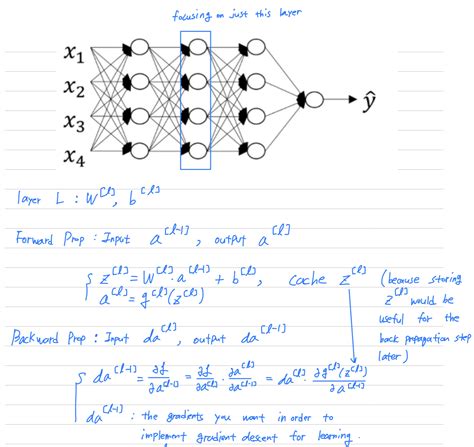 focusing on just this layer
x₁
x₂
x₃
x₄
ŷ
layer L : W^[l], b^[l]
Forward Prop : Input a^[l-1] , output a^[l]
{ z^[l] = W^[l] · a^[l-1] + b^[l] , cache z^[l] (because storing
a^[l] = g^[l](z^[l]) z^[l] would be
useful for the
Backward Prop : Input da^[l] , output da^[l-1] back propagation step
later)
{ da^[l-1] = ∂L/∂a^[l-1] = ∂L/∂a^[l] · ∂a^[l]/∂a^[l-1] = da^[l] · ∂g^[l](z^[l])/∂a^[l-1]
da^[l-1] : the gradients you want in order to
implement gradient descent for learning.